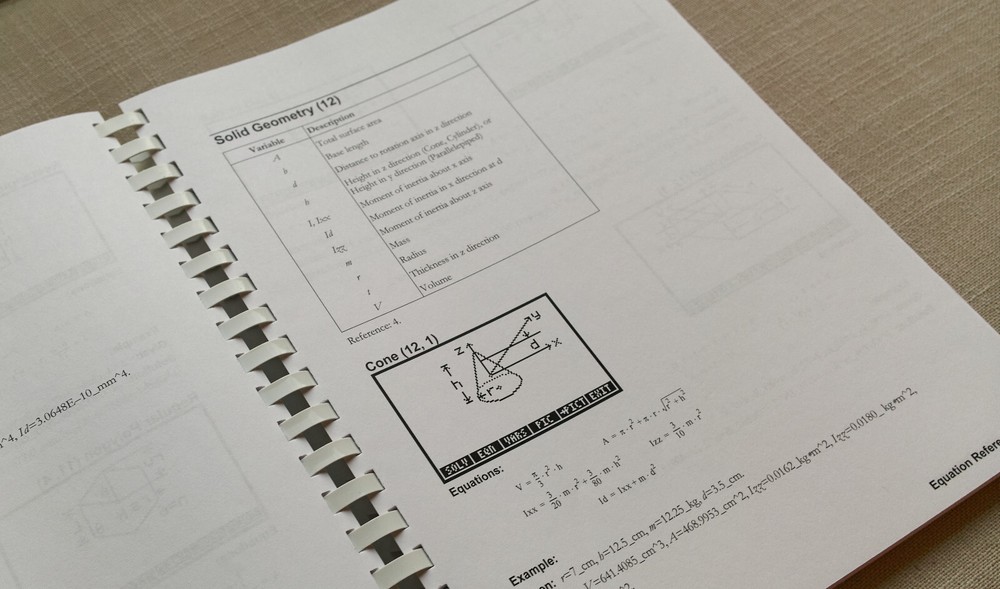 ^4, Id=3.0648E–10_mm^4.
Solid Geometry (12)
Variable Description
A Total surface area
b Base length
d Distance to rotation axis in z direction
h Height in z direction (Cone, Cylinder), or
Height in y direction (Parallelepiped)
I, Ixx Moment of inertia about x axis
Id Moment of inertia in x direction at d
Izz Moment of inertia about z axis
m Mass
r Radius
t Thickness in z direction
V Volume
Reference: 4.
Cone (12, 1)
z y
h d x
r
SOLV EQN VARS PIC →PICT EXIT
Equations:
V = π/3·r²·h A = π·r²+π·r·√(r²+h²)
Ixx = 3/20·m·r²+3/80·m·h² Izz = 3/10·m·r²
Id = Ixx+m·d²
Example:
on: r=7_cm, h=12.5_cm, m=12.25_kg, d=3.5_cm.
V=641.4085_cm^3, A=468.9953_cm^2, Izz=0.0162_kg*m^2, Izz=0.0180_kg*m^2,
^2.
Equation Refere